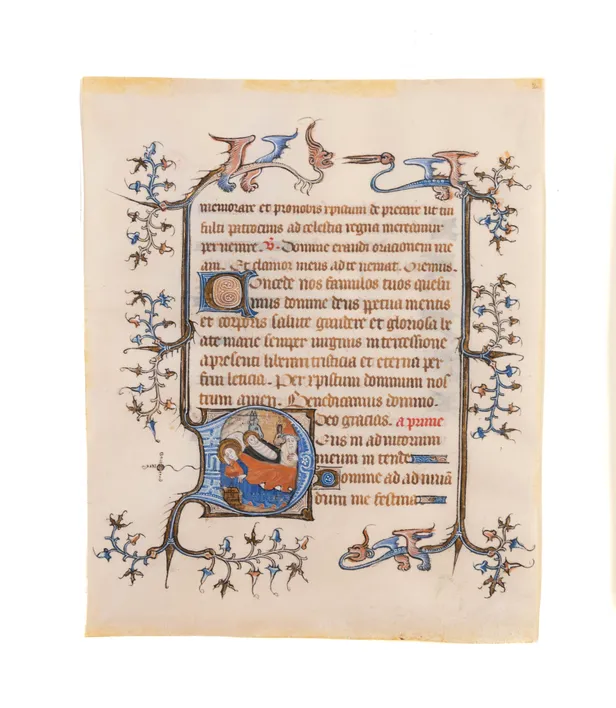 memorare et pronobis xpistum de precare ut tui
fulti patrocinis ad celestia regna mereamur
pervenire. V. Domine exaudi orationem me
am. Et clamor meus ad te veniat. Oremus.
Concede nos famulos tuos quesu
mus domine deus perpetua mentis
et corporis salute gaudere et gloriosa be
ate marie semper virginis intercessione
a presenti liberari tristicia et eterna per
frui leticia. Per xpistum dominum nos
trum amen. Benedicamus domino.
Deo gracias. a prime
Deus in adiutorium
meum in tende
Domine ad adiuvā
dum me festina